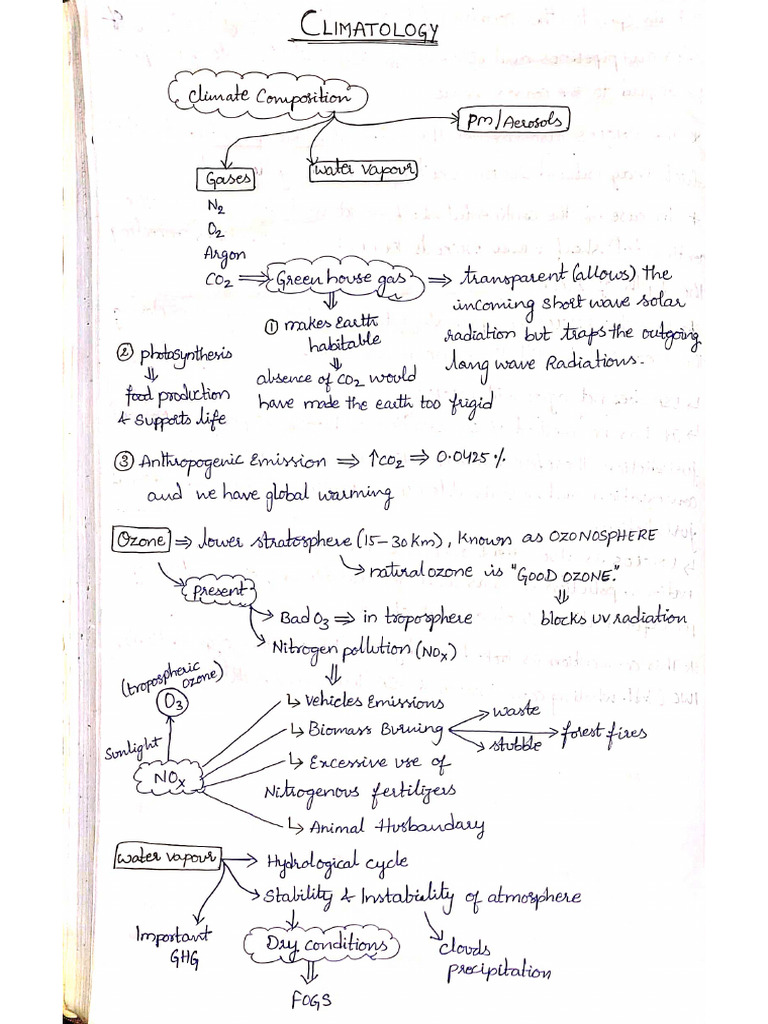 CLIMATOLOGY
Climate Composition
PM/Aerosols
Gases
Water Vapour
N2
O2
Argon
CO2 ⇒ Green house gas ⇒ transparent (allows) the
incoming short wave solar
radiation but traps the outgoing
long wave Radiations.
① makes Earth
habitable
absence of CO2 would
have made the earth too frigid
② photosynthesis
food production
& supports life
③ Anthropogenic Emission ⇒ ↑CO2 ⇒ 0.0425%
and we have global warming
Ozone ⇒ lower stratosphere (15-30 Km), known as OZONOSPHERE
natural ozone is "GOOD OZONE."
blocks UV radiation
Present
Bad O3 ⇒ in troposphere
Nitrogen pollution (NOx)
(tropospheric
ozone)
O3
Sunlight
NOx
Vehicles Emissions
Biomass Burning
waste
forest fires
stubble
Excessive use of
Nitrogenous fertilizers
Animal Husbandary
Water vapour → Hydrological cycle
Stability & Instability of atmosphere
Important
GHG
Dry conditions
FOGS
clouds
precipitation